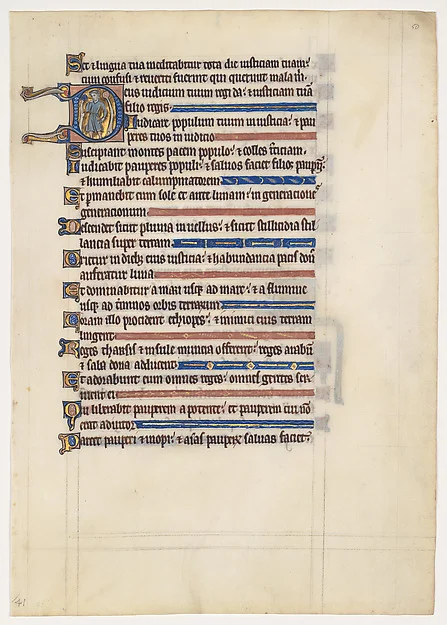 Set & lingua tua meditabitur tota die iusticiam tuam:
cum confusi & reueriti fuerint qui querunt mala m.
Deus iudicium tuum regi da: & iusticiam tuā
filio regis.
Iudicare populum tuum in iusticia: & pau
peres tuos in iudicio
Suscipiant montes pacem populo: & colles
Iudicabit pauperes populi: & saluos faciet filios paupꝝ:
& humiliabit calumpniatorem
Et ꝑmanebit cum sole et ante lunam: in generatione
generacionum
Descendet sicut pluuia in uellus: & sicut stillicidia stil
lancia super terram
Orietur in dieb; eius iusticia: & habundancia pacis don
auferatur luna
Et dominabitur a mari usq; ad mare: & a flumine
usq; ad t'minos orbis terrarum
Coram illo procident ethiopes: & inimici eius terram
lingent
Reges tharsis & insule munera offerent: reges arabū
& saba dona adducent
Et adorabunt eum omnes reges: omnes gentes ser
uient ei
Qia liberabit pauperem a potente: et pauperem cui nō
erat adiutor
Parcet paupi & inopi: & aīas pauperꝝ saluas faciet:
41